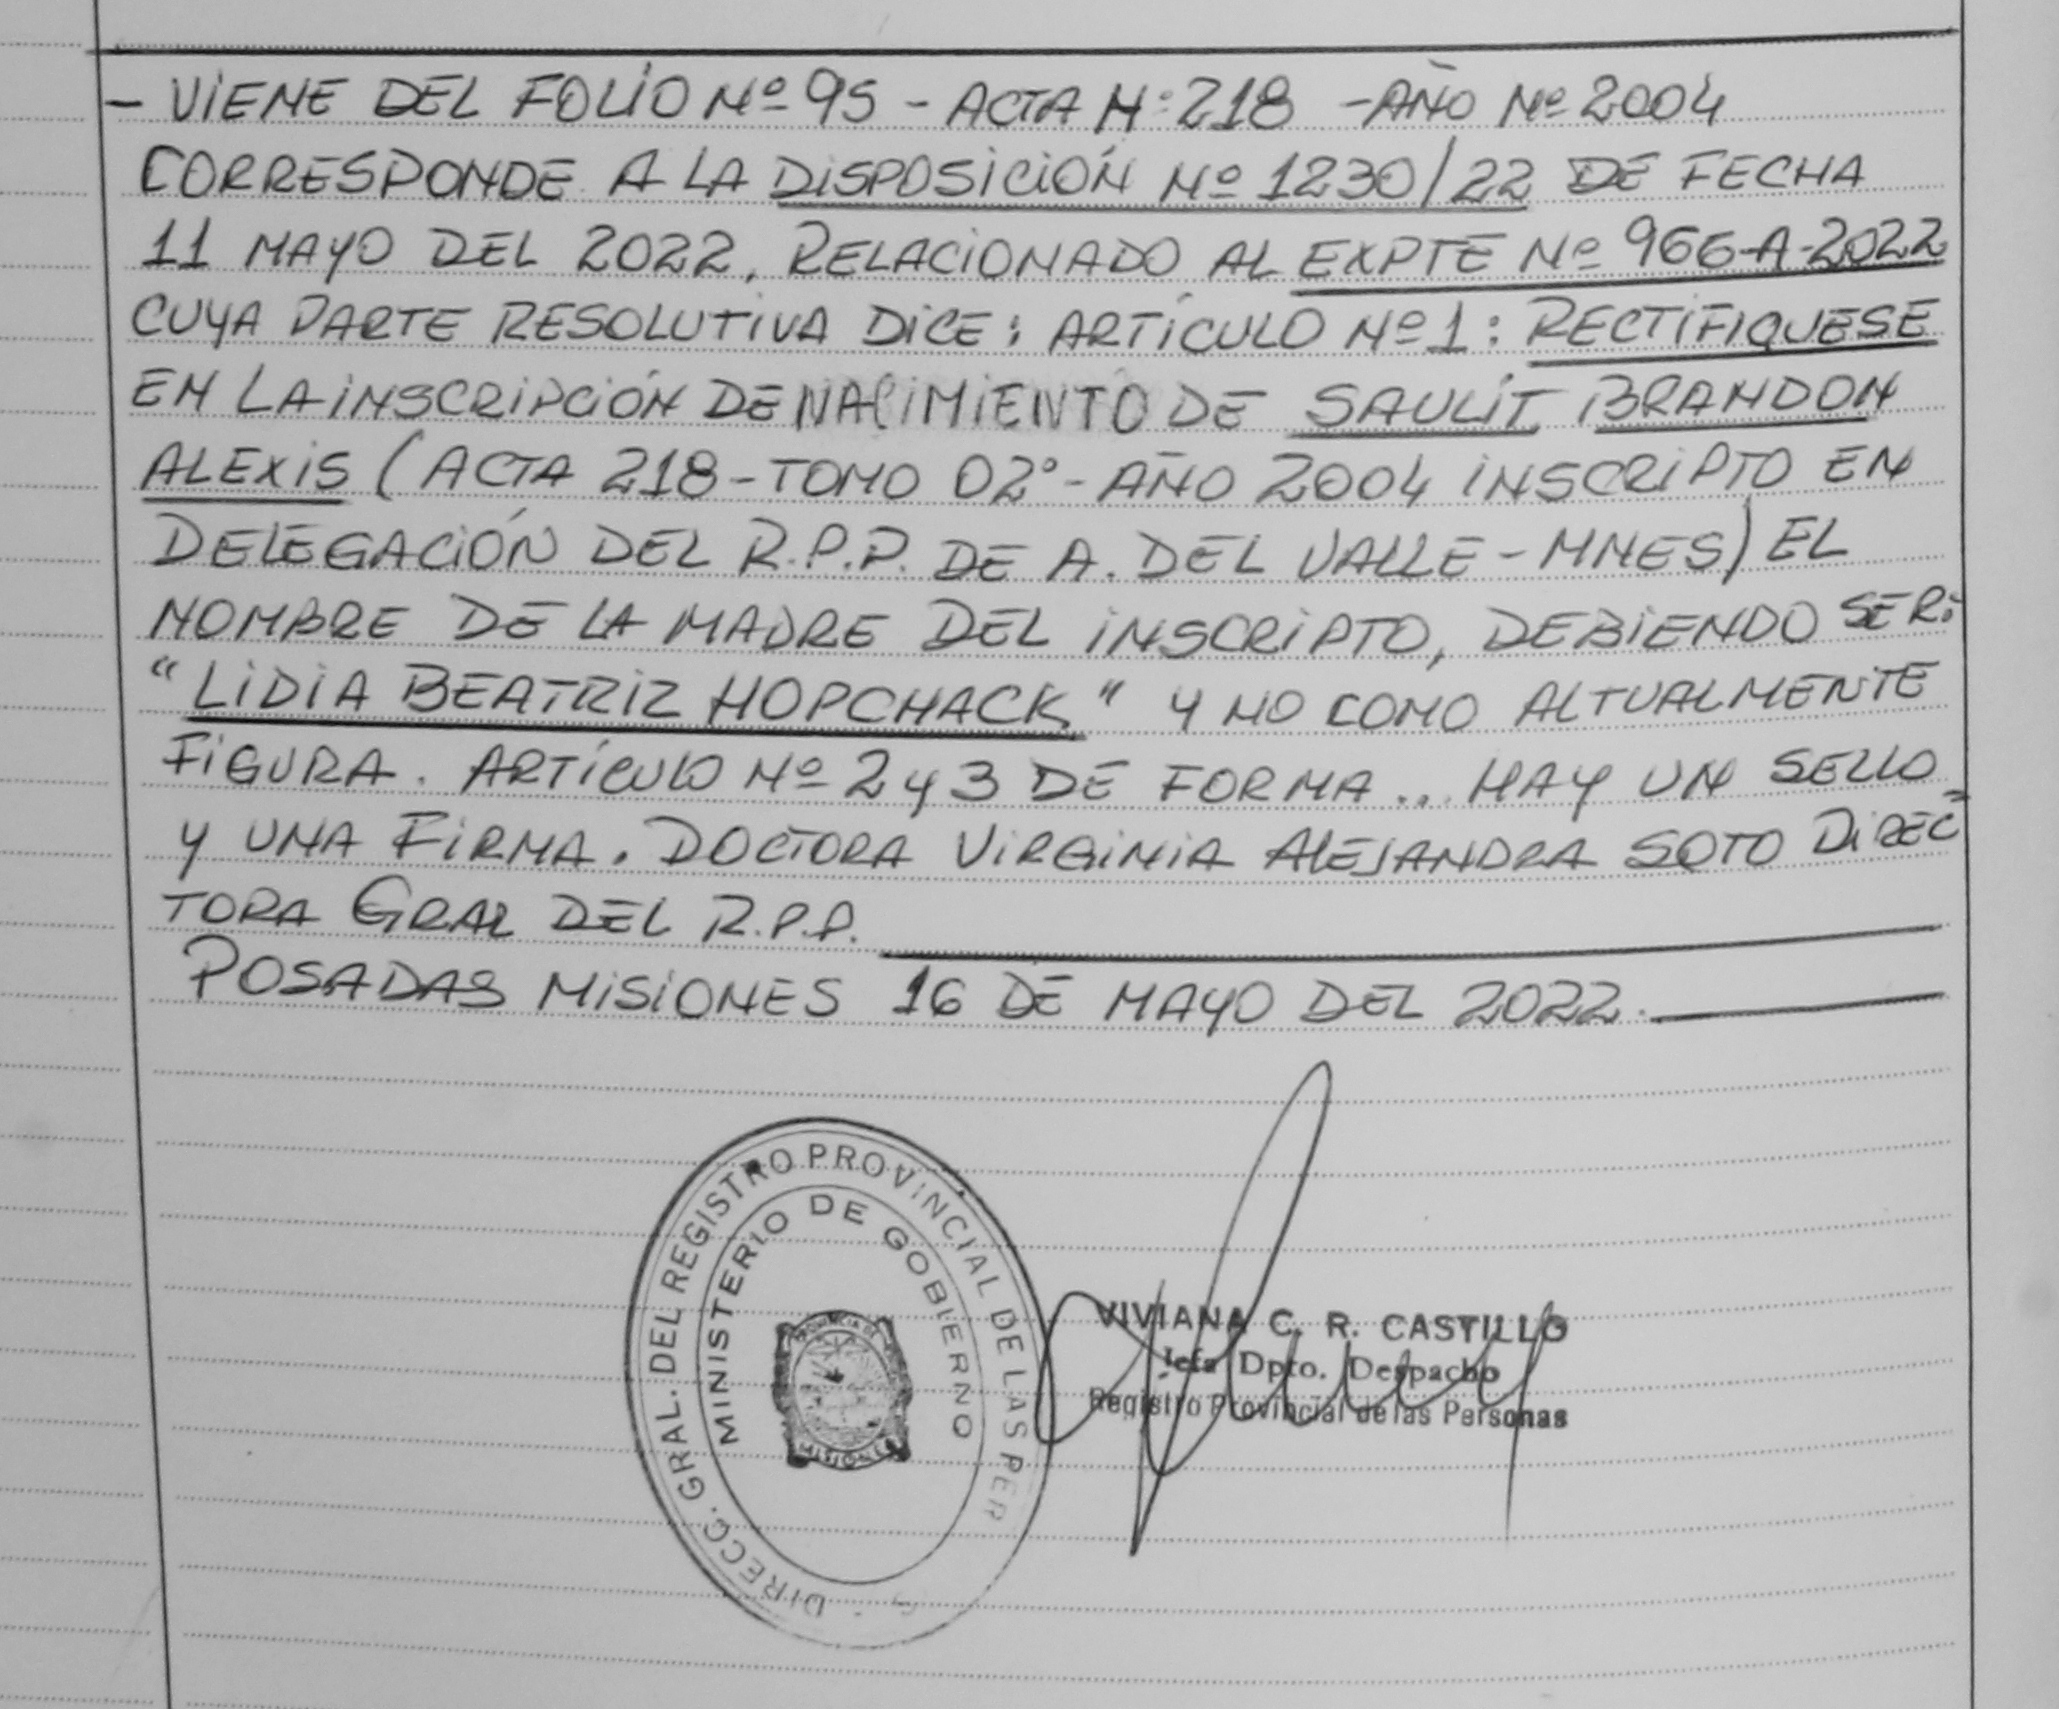 - VIENE DEL FOLIO Nº 95 - ACTA Nº 218 - AÑO Nº 2004
CORRESPONDE A LA DISPOSICIÓN Nº 1230/22 DE FECHA
11 MAYO DEL 2022, RELACIONADO AL EXPTE Nº 966-A-2022
CUYA PARTE RESOLUTIVA DICE: ARTÍCULO Nº 1: RECTIFIQUESE
EN LA INSCRIPCIÓN DE NACIMIENTO DE SAULIT, BRANDON
ALEXIS (ACTA 218 - TOMO 02° - AÑO 2004 INSCRIPTO EN
DELEGACIÓN DEL R.P.P. DE A. DEL VALLE - MNES) EL
NOMBRE DE LA MADRE DEL INSCRIPTO, DEBIENDO SER:
"LIDIA BEATRIZ HOPCHACK" Y NO COMO ALTUALMENTE
FIGURA. ARTÍCULO Nº 2 Y 3 DE FORMA... HAY UN SELLO
Y UNA FIRMA. DOCTORA VIRGINIA ALEJANDRA SOTO DIREC=
TORA GRAL DEL R.P.P.
POSADAS MISIONES 16 DE MAYO DEL 2022.
DIRECC. GRAL. DEL REGISTRO PROVINCIAL DE LAS PER
MINISTERIO DE GOBIERNO
PROVINCIA DE
MISIONES
VIVIANA C. R. CASTILLO
Jefa Dpto. Despacho
Registro Provincial de las Personas